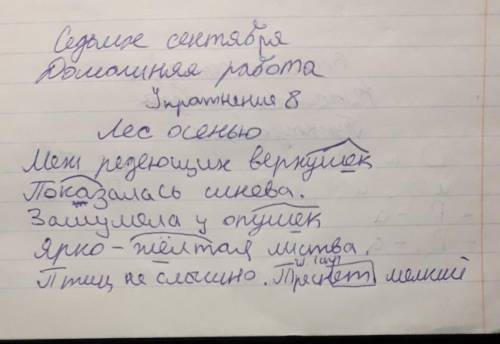 Седьмое сентября
Домашняя работа
Упражнение 8
Лес осенью
Меж редеющих верхушек
Показалась синева.
Зашумела у опушек
Ярко-жёлтая листва.
Птиц не слышно. Треснет мелкий